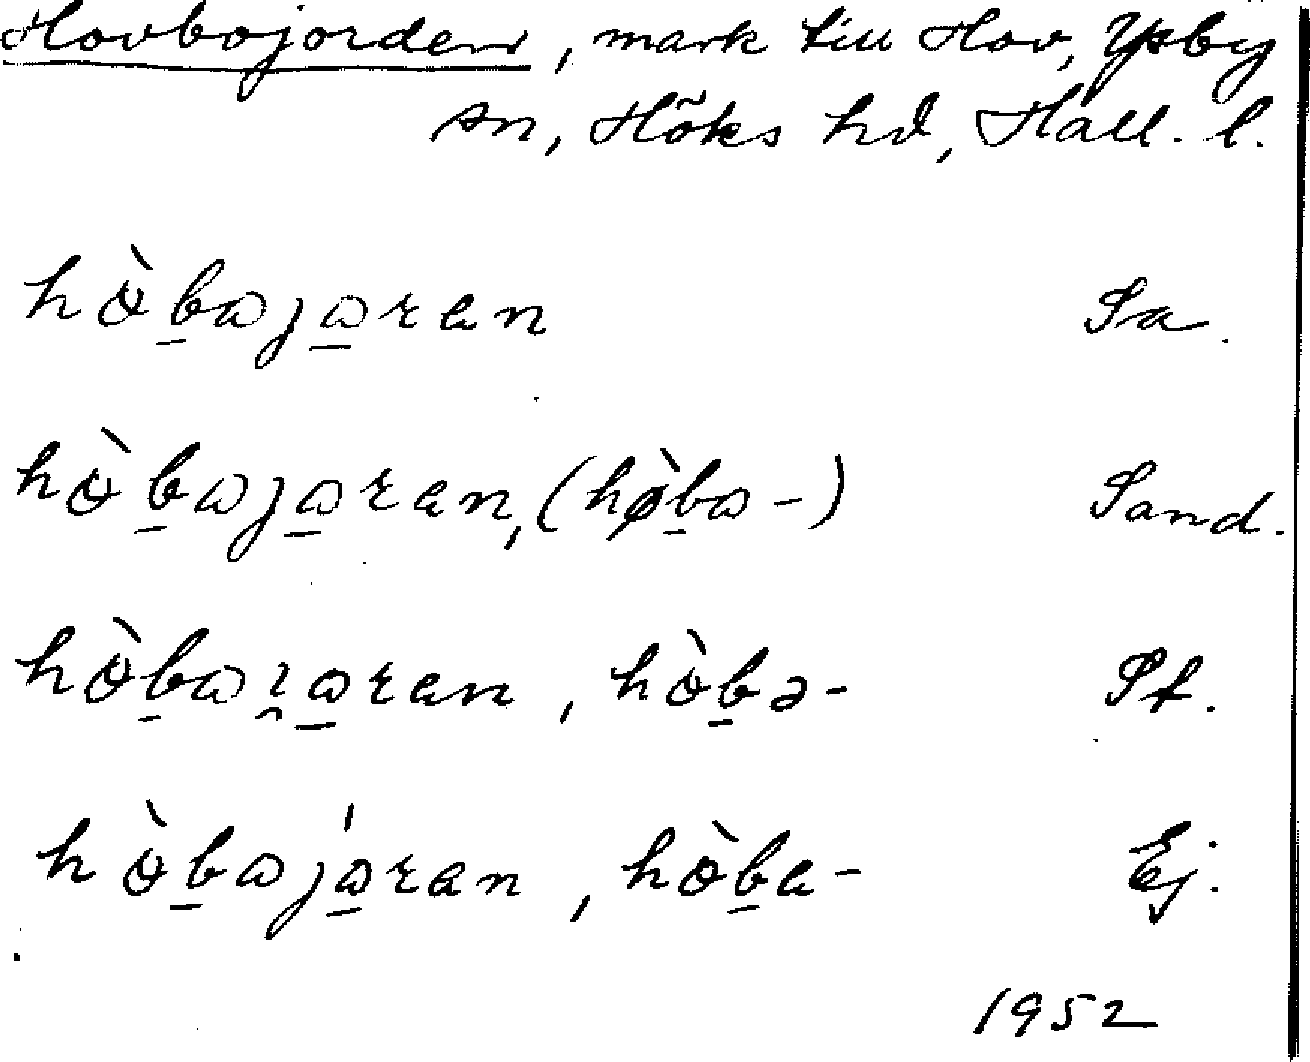 Hovbojorden, mark till Hov, Ysby
sn, Höks hd, Hall. l.
hòb̠ɷjɷ̠ran Sa.
hòb̠ɷjɷ̠ran, (hø̀b̠ɷ-) Sand.
hòb̠ɷı̯ɷ̠ran, hòb̠ə- St.
hòb̠ɷjɷ̠́ran, hòb̠a- Ej.
1952